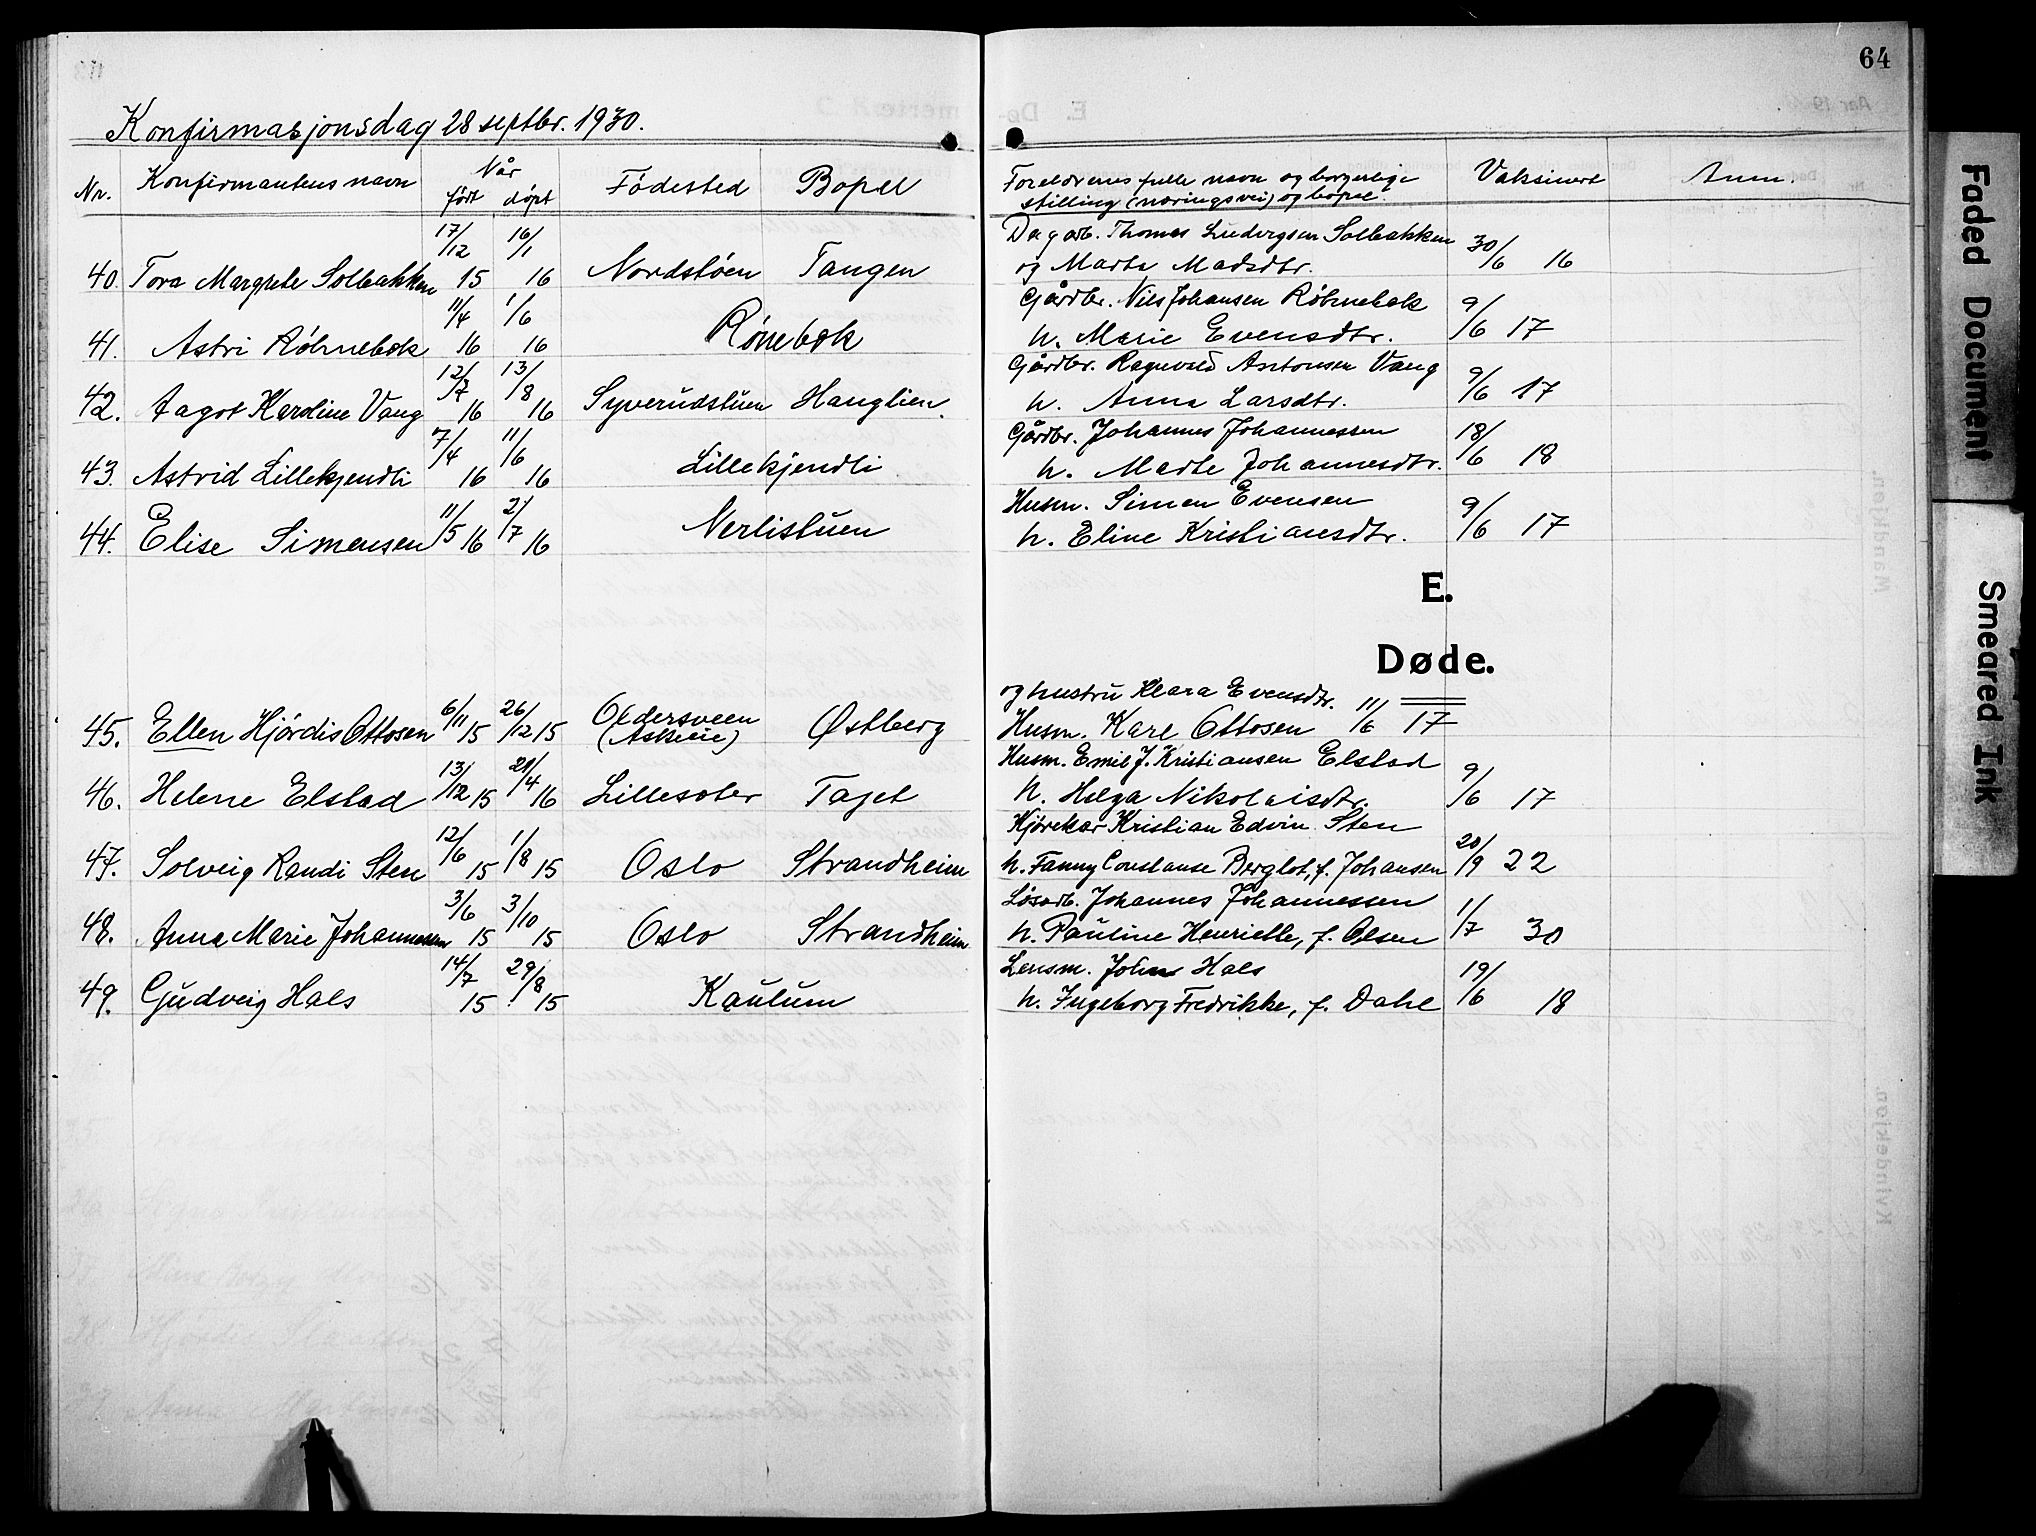 64
Konfirmasjonsdag 28 septbr. 1930.
Nr. Konfirmantens navn Når født døpt Fødested Bopel Foreldrenes fulle navn og borgerlige stilling (næringsvei) og bopel. Vaksinert Anm.
40. Tora Margrete Solbakken 17/12 15 16/1 16 Nordstøen Tangen Dagarb. Thomas Ludvigsen Solbakken 30/6 16
og Marte Madsdtr.
41. Astri Röhnebæk 11/4 16 1/6 16 Rönebæk Gårdbr. Nils Johansen Röhnebæk 9/6 17
h. Marie Evensdtr.
42. Aagot Karoline Vang 12/7 16 13/8 16 Syverudstuen Hanglien. Gårdbr. Ragnvald Antonsen Vang 9/6 17
h. Anna Larsdtr.
43. Astrid Lillekjendli 7/4 16 11/6 16 Lillekjendli Gårdbr. Johannes Johannessen 18/6 18
h. Marte Johannesdtr.
44. Elise Simensen 11/5 16 2/7 16 Nerlistuen Husm. Simen Evensen 9/6 17
h. Eline Kristiansdtr.
E.
Døde.
og hustru Klara Evensdtr.
45. Ellen Hjørdis Ottosen 6/11 15 26/12 15 Oldersveen (Askeie) Østberg Husm. Karl Ottosen 11/6 17
46. Helene Elstad 13/12 15 /4 16 Lillesæter Taget Husm. Emil J. Kristiansen Elstad 9/6 17
h. Helga Nikolaisdtr.
47. Solveig Randi Sten 12/6 15 1/8 15 Oslo Strandheim Kjørekar Kristian Edvin Sten 20/9 22
h. Fanny Constanse Berglot, f. Johansen
48. Anna Marie Johannessen 3/6 15 3/10 15 Oslo Strandheim Løsarb. Johannes Johannessen 1/7 30
h. Pauline Henriette, f. Olsen
49. Gudveig Hals 14/7 15 29/8 15 Kaulum Lensm. John Hals 19/6 18
h. Ingeborg Fredrikke, f. Dahl
Faded Document
Smeared Ink